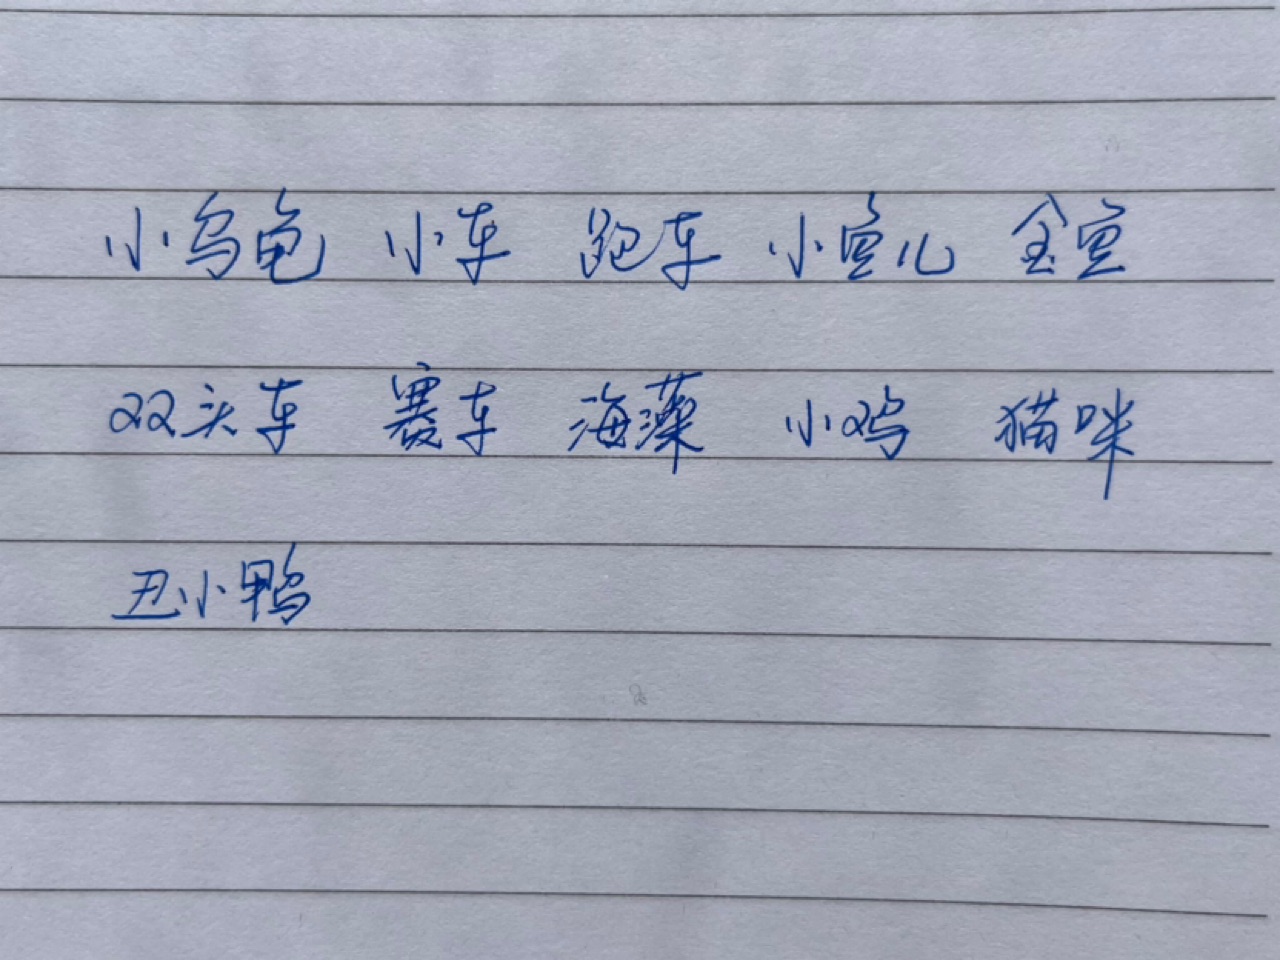 小乌龟 小车 跑车 小鱼儿 金鱼
双头车 赛车 海藻 小鸡 猫咪
丑小鸭